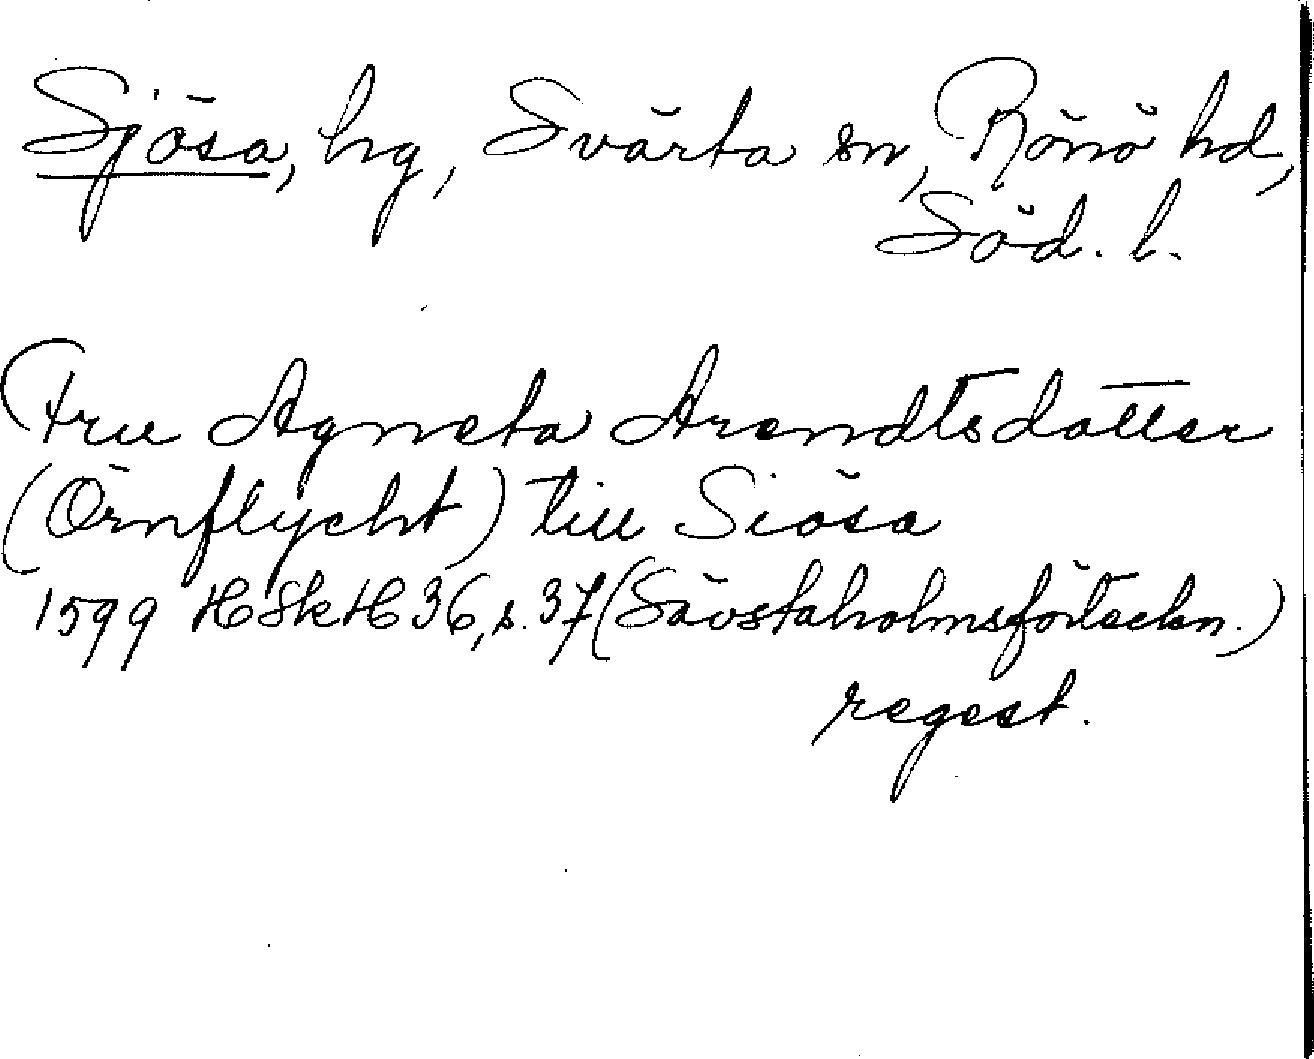 Sjösa, hg, Svärta sn, Rönö hd,
Söd. l.
Fru Agneta Arendtsdatter
(Örnflycht) till Siösa
1599 HSkH 36, s. 37 (Sävstaholmsförteckn.)
regest.